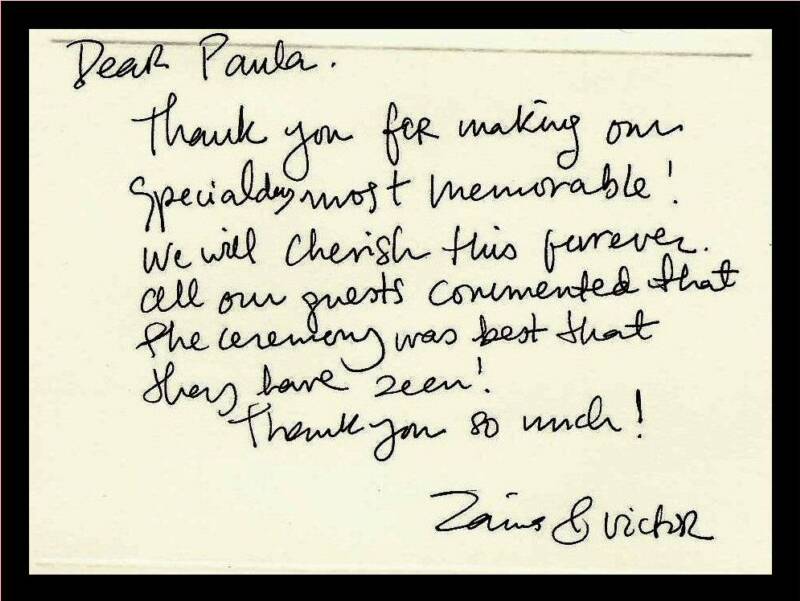 Dear Paula.
Thank you for making our
special day most memorable!
We will cherish this forever.
all our guests commented that
the ceremony was best that
they have seen!
Thank you so much!
& Victor